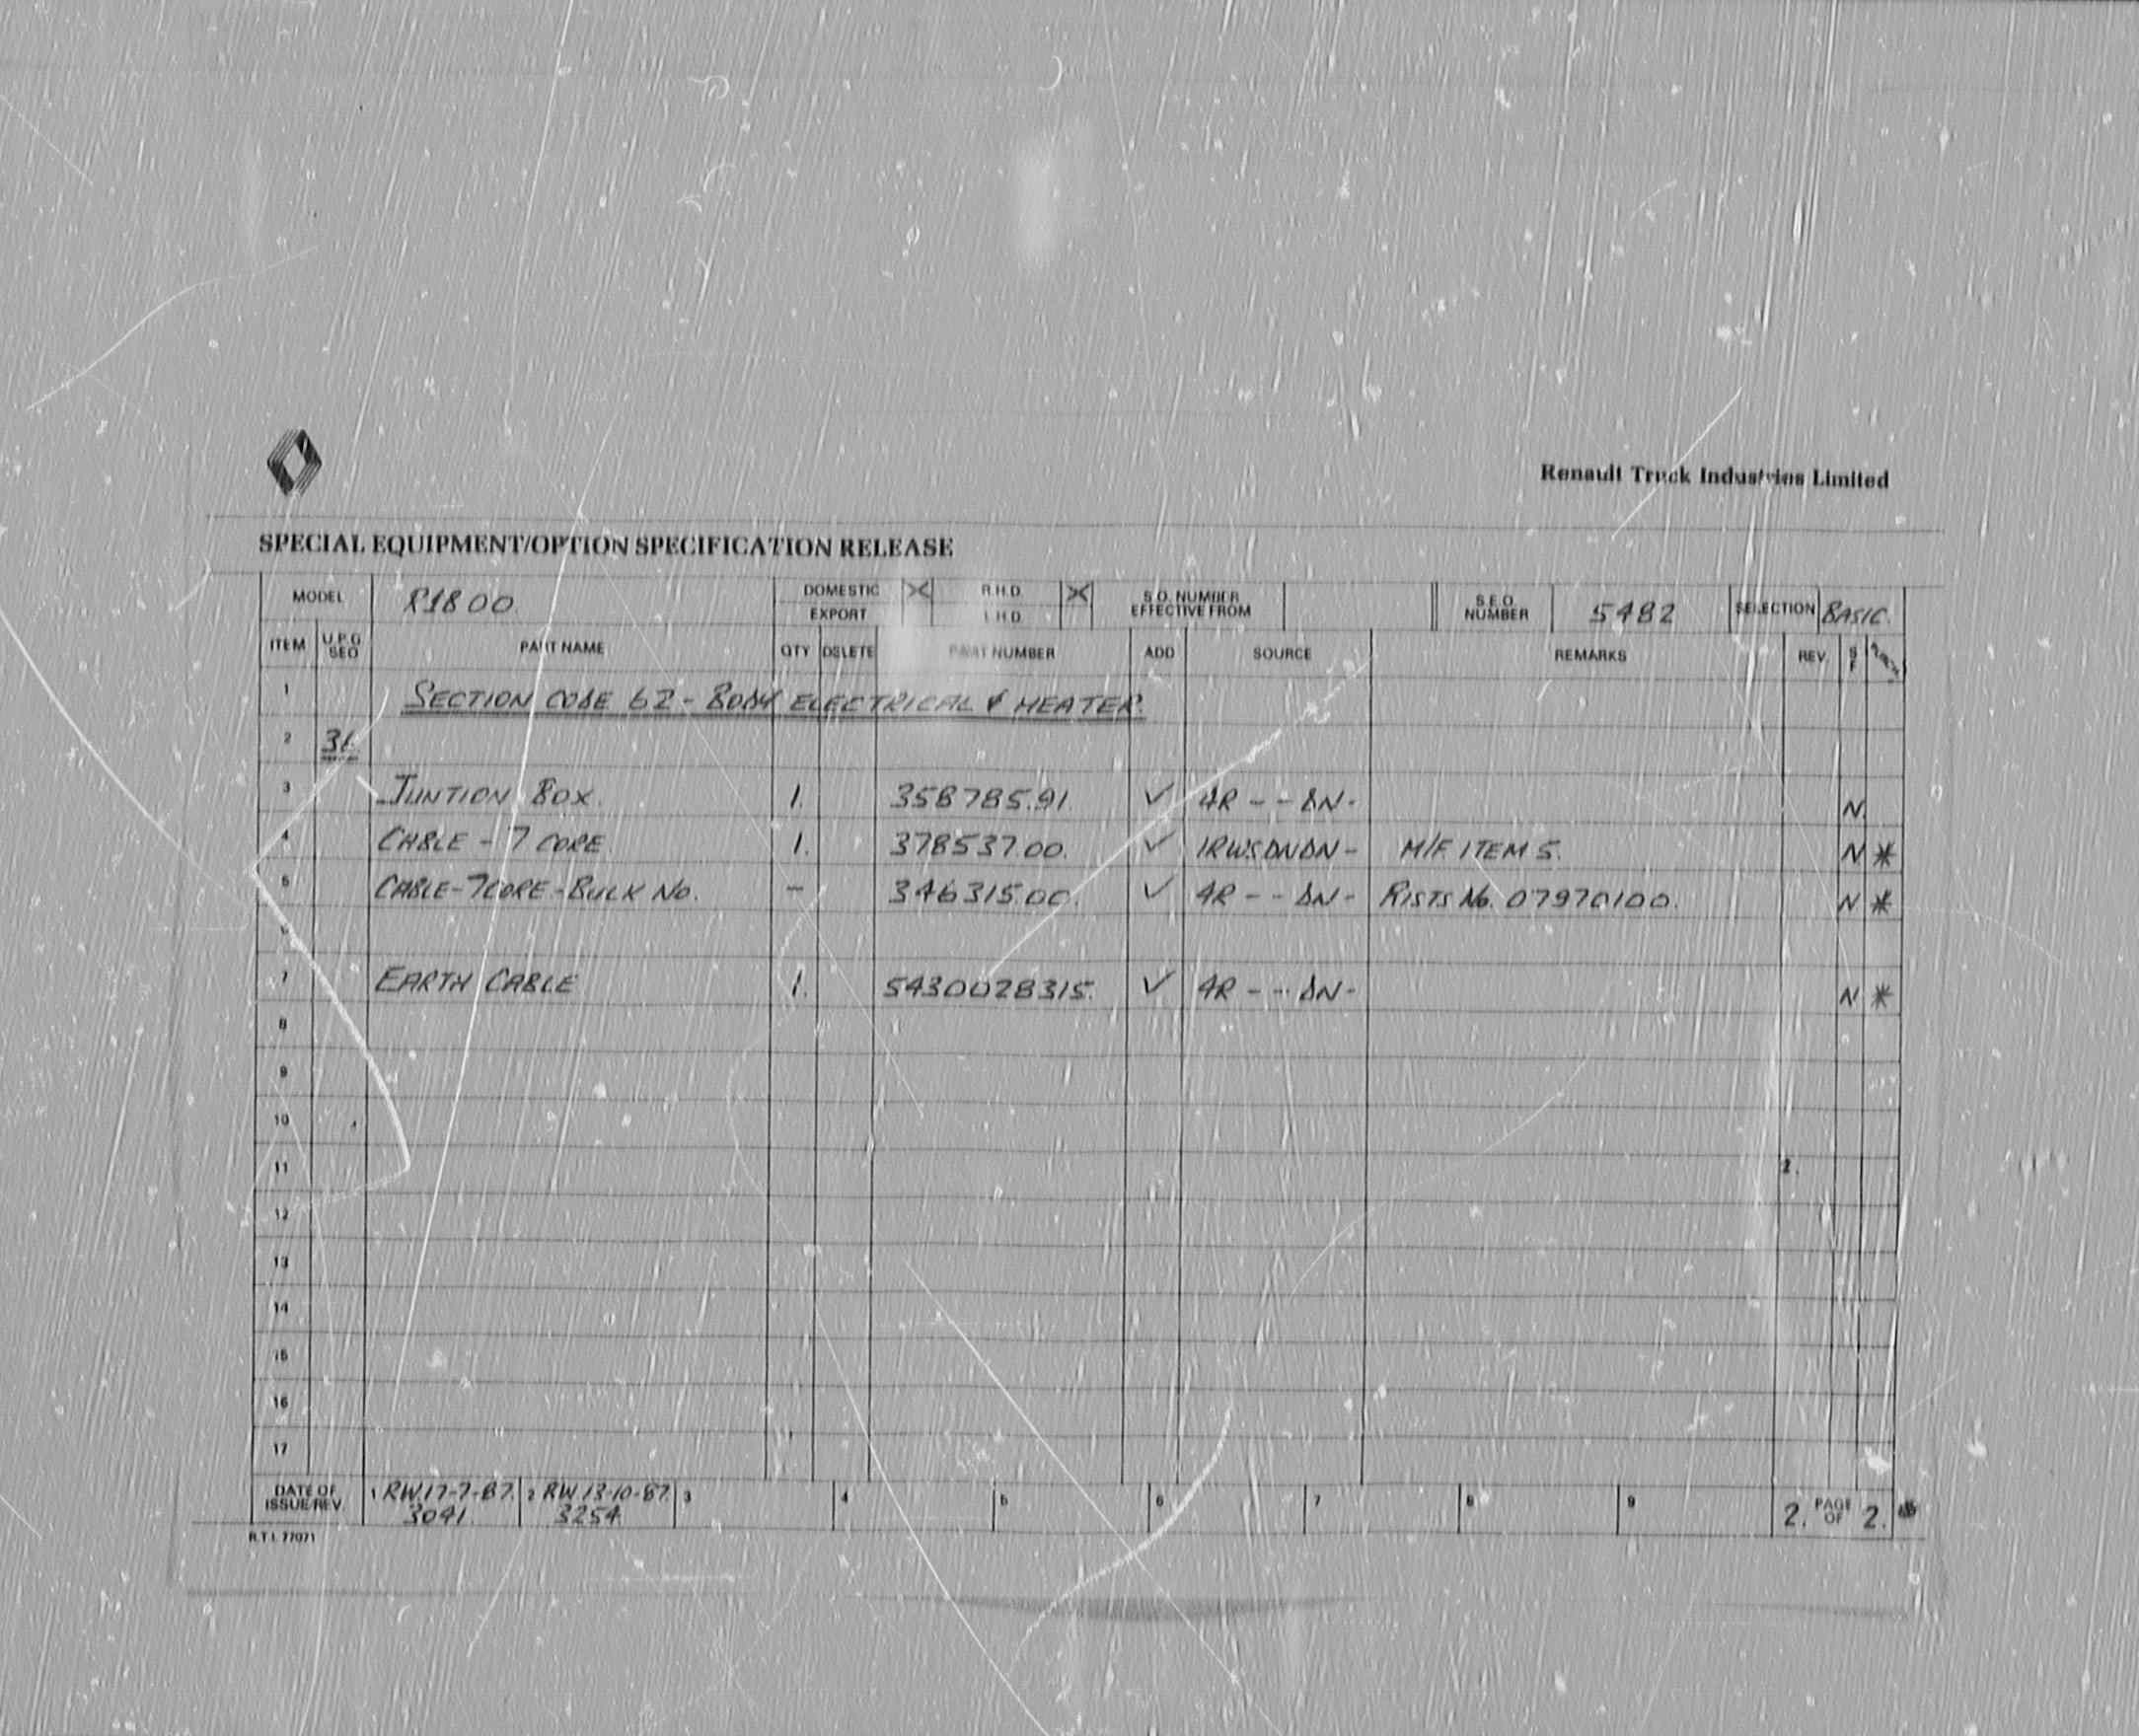 Renault Truck Industries Limited
SPECIAL EQUIPMENT/OPTION SPECIFICATION RELEASE
MODEL R1800 DOMESTIC X R.H.D. X S.O. NUMBER EFFECTIVE FROM S.E.O. NUMBER 5482 SELECTION BASIC.
EXPORT L.H.D.
ITEM U.P.G. SEO PART NAME QTY DELETE PART NUMBER ADD SOURCE REMARKS REV. S F
1 SECTION CODE 62 - BODY ELECTRICAL & HEATER.
2
3 JUNTION BOX. 1. 358785.91. ✓ 4R - - DN - N.
4 CABLE - 7 CORE 1. 378537.00. ✓ 1RWSDNDN - M/F ITEM 5. N *
5 CABLE-7CORE-BULK NO. - 346315.00. ✓ 4R - - DN - RISTS No. 07970100. N *
6
7 EARTH CABLE 1. 5430028315. ✓ 4R - - DN - N *
8
9
10
11 2.
12
13
14
15
16
17
DATE OF ISSUE/REV. 1 RW.17-7-87. 2 RW.13-10-87. 3 4 5 6 7 8 9 2. PAGE OF 2.
3041. 3254.
R.T.I. 77071